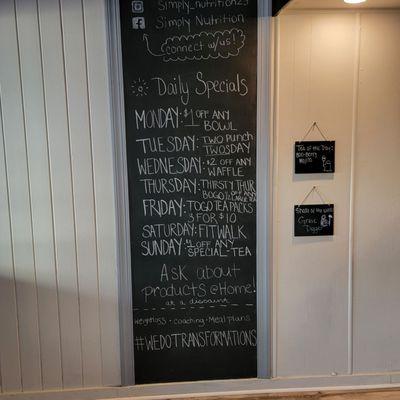 Simply_nutrition23
Simply Nutrition
connect w/ us!
Daily Specials
MONDAY: $1 OFF ANY
BOWL
TUESDAY: TWO PUNCH
TWOSDAY
WEDNESDAY: $2 OFF ANY
WAFFLE
THURSDAY: THIRSTY THUR
BOGO ½ OFF ANY
FRIDAY: TOGO TEA PACKS
3 FOR $10
SATURDAY: FITWALK
SUNDAY: $1 OFF ANY
SPECIAL-TEA
ASK about
products @Home!
at a discount
weightloss · coaching · Meal plans
#WEDOTRANSFORMATIONS
Tea of the Day:
Boo-Berry
Mojito
Shake of the Week:
Grave
Digger